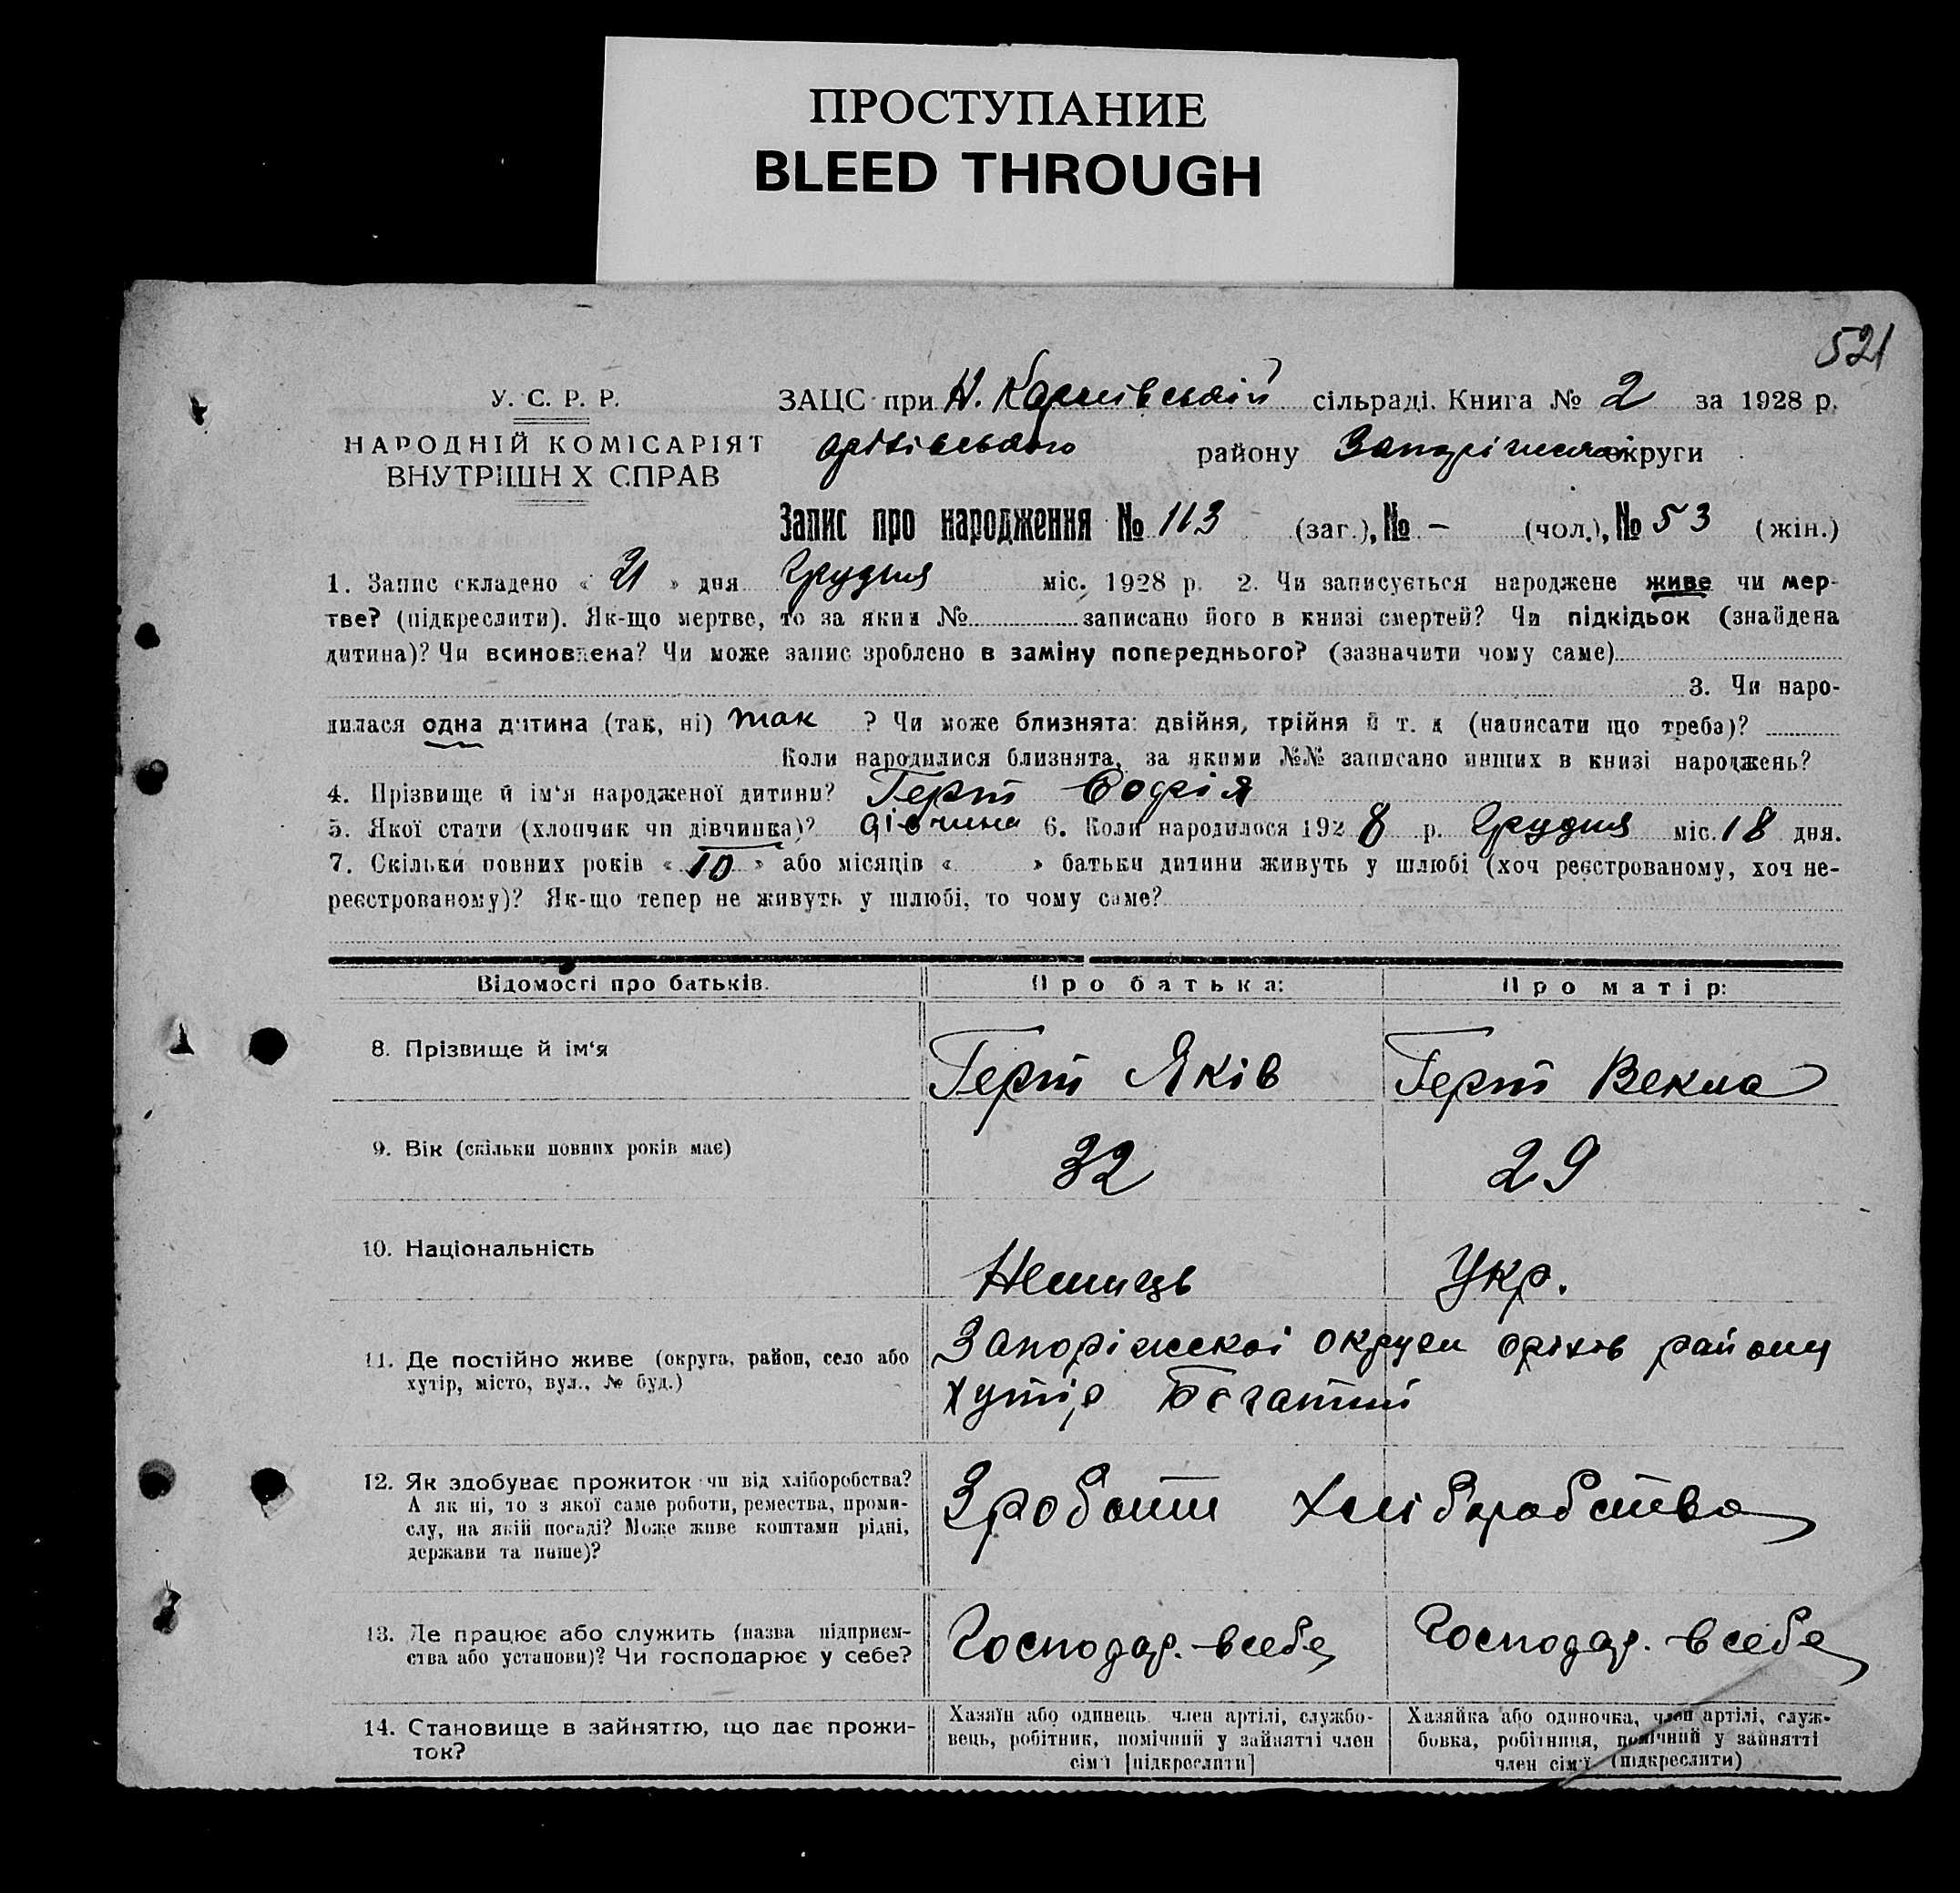 ПРОСТУПАНИЕ
BLEED THROUGH
521
У. С. Р. Р.
НАРОДНІЙ КОМІСАРІЯТ
ВНУТРІШН Х СПРАВ
ЗАЦС при Н. Карлівській сільраді. Книга № 2 за 1928 р.
оріхівського району Запоріжської округи
Запис про народження № 113 (заг.), № – (чол.), № 53 (жін.)
1. Запис складено « 21 » дня Грудня міс. 1928 р. 2. Чи записується народжене живе чи мер-
тве? (підкреслити). Як-що мертве, то за яким № записано його в книзі смертей? Чи підкідьок (знайдена
дитина)? Чи всиновлена? Чи може запис зроблено в заміну попереднього? (зазначити чому саме)
3. Чи наро-
дилася одна дитина (так, ні) так ? Чи може близнята: двійня, трійня й т. д (написати що треба)?
Коли народилися близнята, за якими №№ записано инших в книзі народжень?
4. Прізвище й ім‘я народженої дитини? Герт Софія
5. Якої стати (хлопчик чи дівчинка)? дівчина 6. Коли народилося 1928 р. Грудня міс. 18 дня.
7. Скільки повних років « 10 » або місяців « » батьки дитини живуть у шлюбі (хоч реєстрованому, хоч не-
реєстрованому)? Як-що тепер не живуть у шлюбі, то чому саме?
Відомості про батьків. Про батька: Про матір:
8. Прізвище й ім‘я Герт Яків Герт Векла
9. Вік (скільки повних років має) 32 29
10. Національність Немиць Укр.
11. Де постійно живе (округа, район, село або
хутір, місто, вул., № буд.)
Запоріжскоі округи оріхів району
хутір Богатий
12. Як здобуває прожиток чи від хліборобства?
А як ні, то з якої саме роботи, ремества, проми-
слу, на якій посаді? Може живе коштами рідні,
держави та инше)?
Зроботи хліборобства
13. Де працює або служить (назва підприєм-
ства або установи)? Чи господарює у себе?
Господар. в себе Господар. в себе
14. Становище в зайняттю, що дає прожи-
ток?
Хазяїн або одинець член артілі, службо-
вець, робітник, помічний у зайнятті член
сім‘ї [підкреслити]
Хазяйка або одиночка, член артілі, служ-
бовка, робітниця, помічний у зайнятті
член сім‘ї (підкреслити)